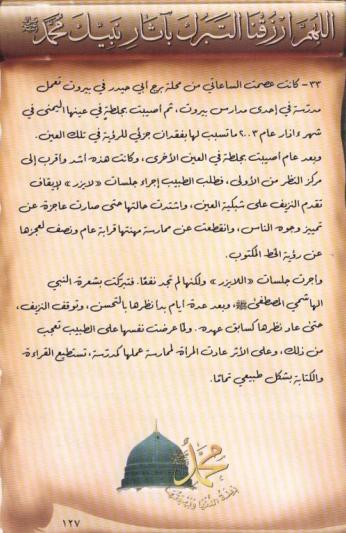 اللهم ارزقنا التبرك بآثار نبيك محمد ﷺ
٣٣- كانت عصمت الساعاتي من محلة برج أبي حيدر في بيروت تعمل
مدرّسة في إحدى مدارس بيروت، ثم أصيبت بجلطة في عينها اليمنى في
شهر ءاذار عام ٢٠٠٣ ما تسبب لها بفقدان جزئي للرؤية في تلك العين.
وبعد عام أصيبت بجلطة في العين الأخرى، وكانت هذه أشد وأقرب إلى
مركز النظر من الأولى، فطلب الطبيب إجراء جلسات «لايزر» لإيقاف
تقدم النزيف على شبكية العين، واشتدت حالتها حتى صارت عاجزة عن
تمييز وجوه الناس، وانقطعت عن ممارسة مهنتها قرابة عام ونصف لعجزها
عن رؤية الخط المكتوب.
وأجرت جلسات «اللايزر» ولكنها لم تجد نفعًا. فتبركت بشعرة النبي
الهاشمي المصطفى ﷺ، وبعد عدة أيام بدأ نظرها بالتحسن، وتوقف النزيف،
حتى عاد نظرها كسابق عهده. ولما عرضت نفسها على الطبيب تعجب
من ذلك، وعلى الأثر عادت المرأة لممارسة عملها كمدرّسة، تستطيع القراءة
والكتابة بشكل طبيعي تمامًا.
محمد
١٢٧